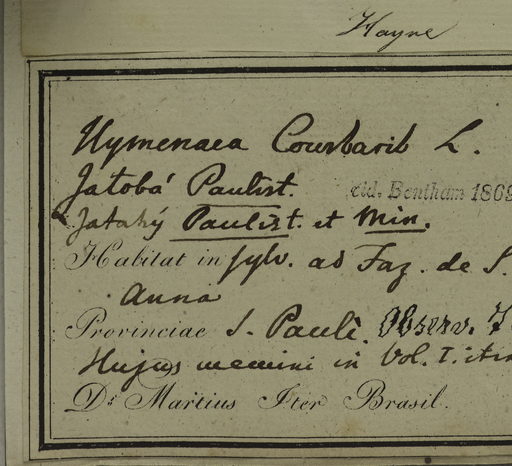 Hayne
Hymenaea Courbaril L.
Jatobá Paulist.
vid. Bentham 1869
Jatahý Paulist. et Min.
Habitat in sylv. ad Faz. de S.
Anna
Provinciae S. Pauli. Observ.
Hujus memini in Vol. I. itin
Dr. Martius Iter Brasil.